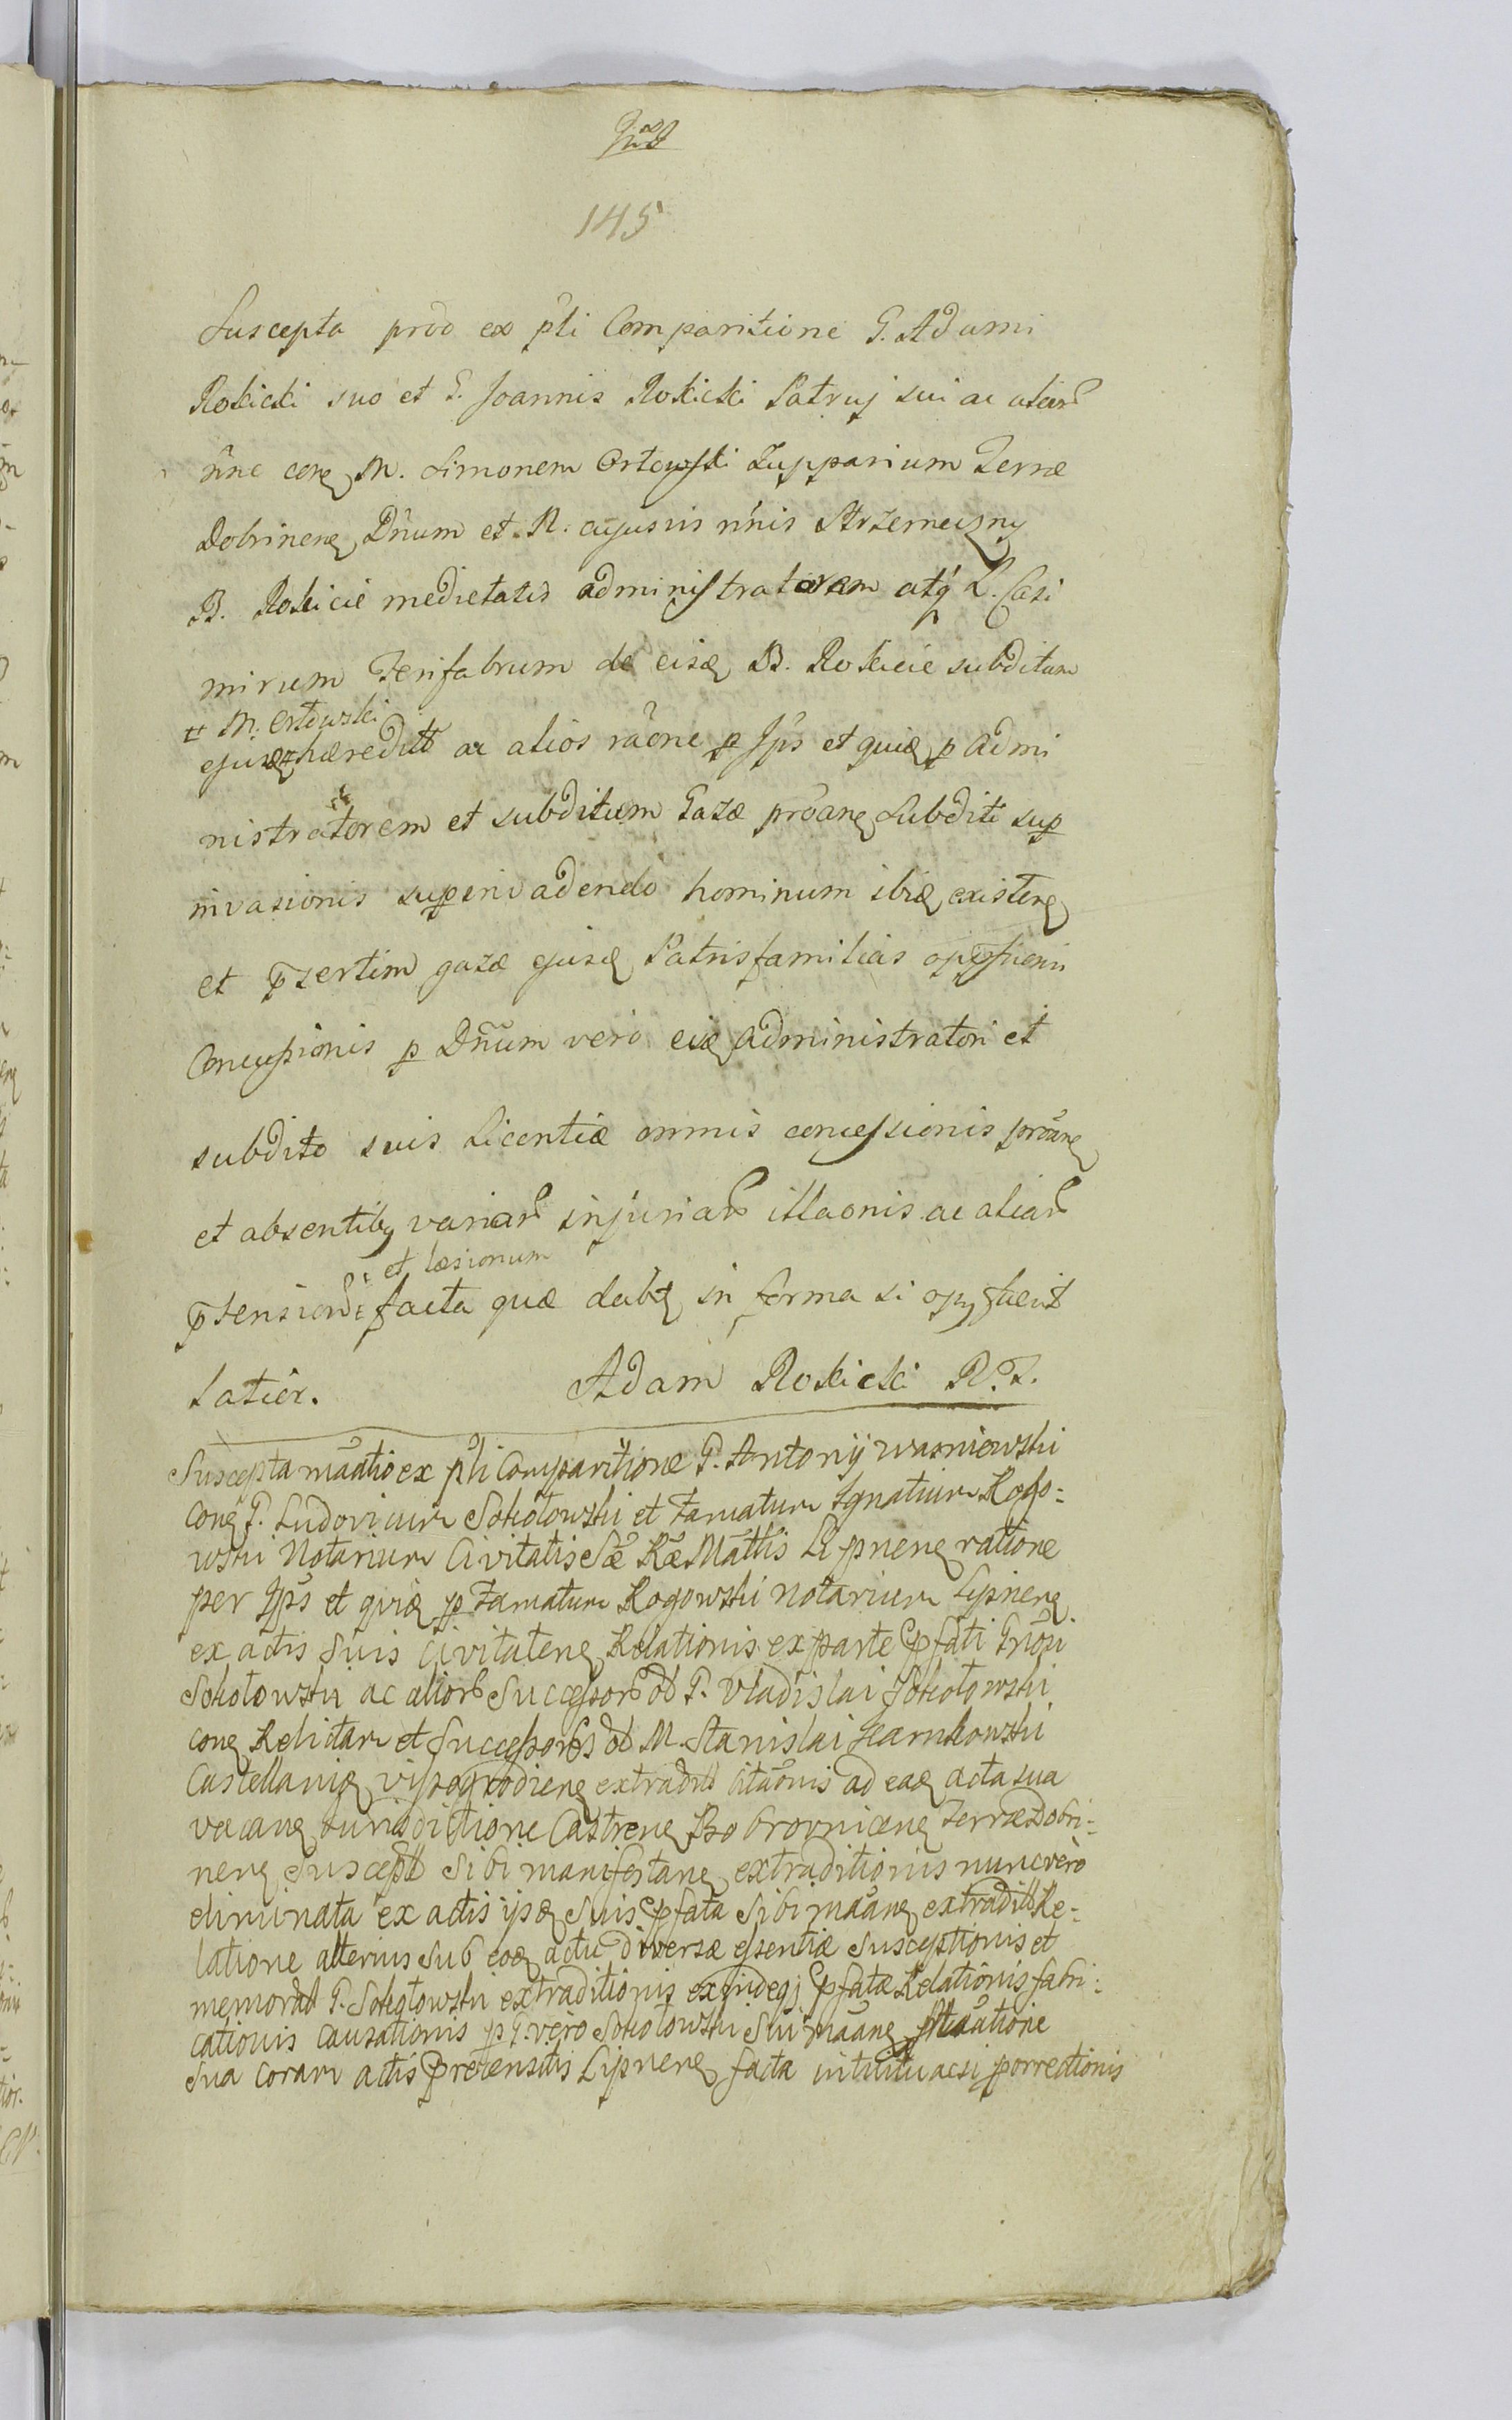 145
Suscepta prõo ex pñti Comparitione G. Adami
Rokicki suo et G. Joannis Rokicki Patruj sui ac aliar
nñe conq M. Simonem Orłowski Zupparium Terræ
Dobrinenę Dñum et R. cujusvis nñis Strzemeczny
B. Rokicie medietatis administratorem atq́ L. Casi
mirum Ferifabrum de eisdę B. Rokicie subditum
# M. Orłowski
ejusdę # hæredit ac alios raõne p Ips et quidę p Admi
nistratorem et subditum Gazæ prõanę Subditi sup
invasionis superinvadendo hominum ibidę existenę
et p̃sertim gazæ ejusdę Patrisfamilias
Concussionis p Dñum vero eidę administratori et
subdito suis Licentiæ omnis concessionis prõanę
et absentibq variar injuriar illaõnis ac aliar
et læsionum
p̃tension facta quæ dabitę in forma si opq fuerit
Latior. Adam Rokicki R.T.
Suscepta mãatio ex pñti Comparitione G. Antonij Wasniowski
conq G. Ludovicum Sokołowski et Famatum Ignatium Rogo=
wski Notarium Civitatis Sæ Ræ Mattis Lipnenę ratione
per Ips et quidę p Famatum Rogowski Notarium Lipnenę
ex actis suis Civitatenę Relationis ex parte p̃fati Gnõsi
Sokołowski ac alior Successor od G. Vladislai Sokołowski
conq Relictam et Successores od M. Stanislai Karnkowski
Castellanię Vissogrodienę extradit Citaõnis ad eadę acta sua
vacanę Jurisdictione Castrenę Bobrovnicenę Terræ Dobri=
nenę suscept sibi manifestanę extraditionis nunc vero
eliminata ex actis ipsdę suis p̃fata sibi mãanę extradit Re=
latione alterius sub eodę actu diversæ essentiæ susceptionis et
memorat G. Sokołowski extraditionis exindeq; p̃fatæ Relationis fabri=
cationis causationis p G. vero Sokołowski sui mãanę
sua coram actis præcensitis Lipnenę facta intuitu acsi porrectionis